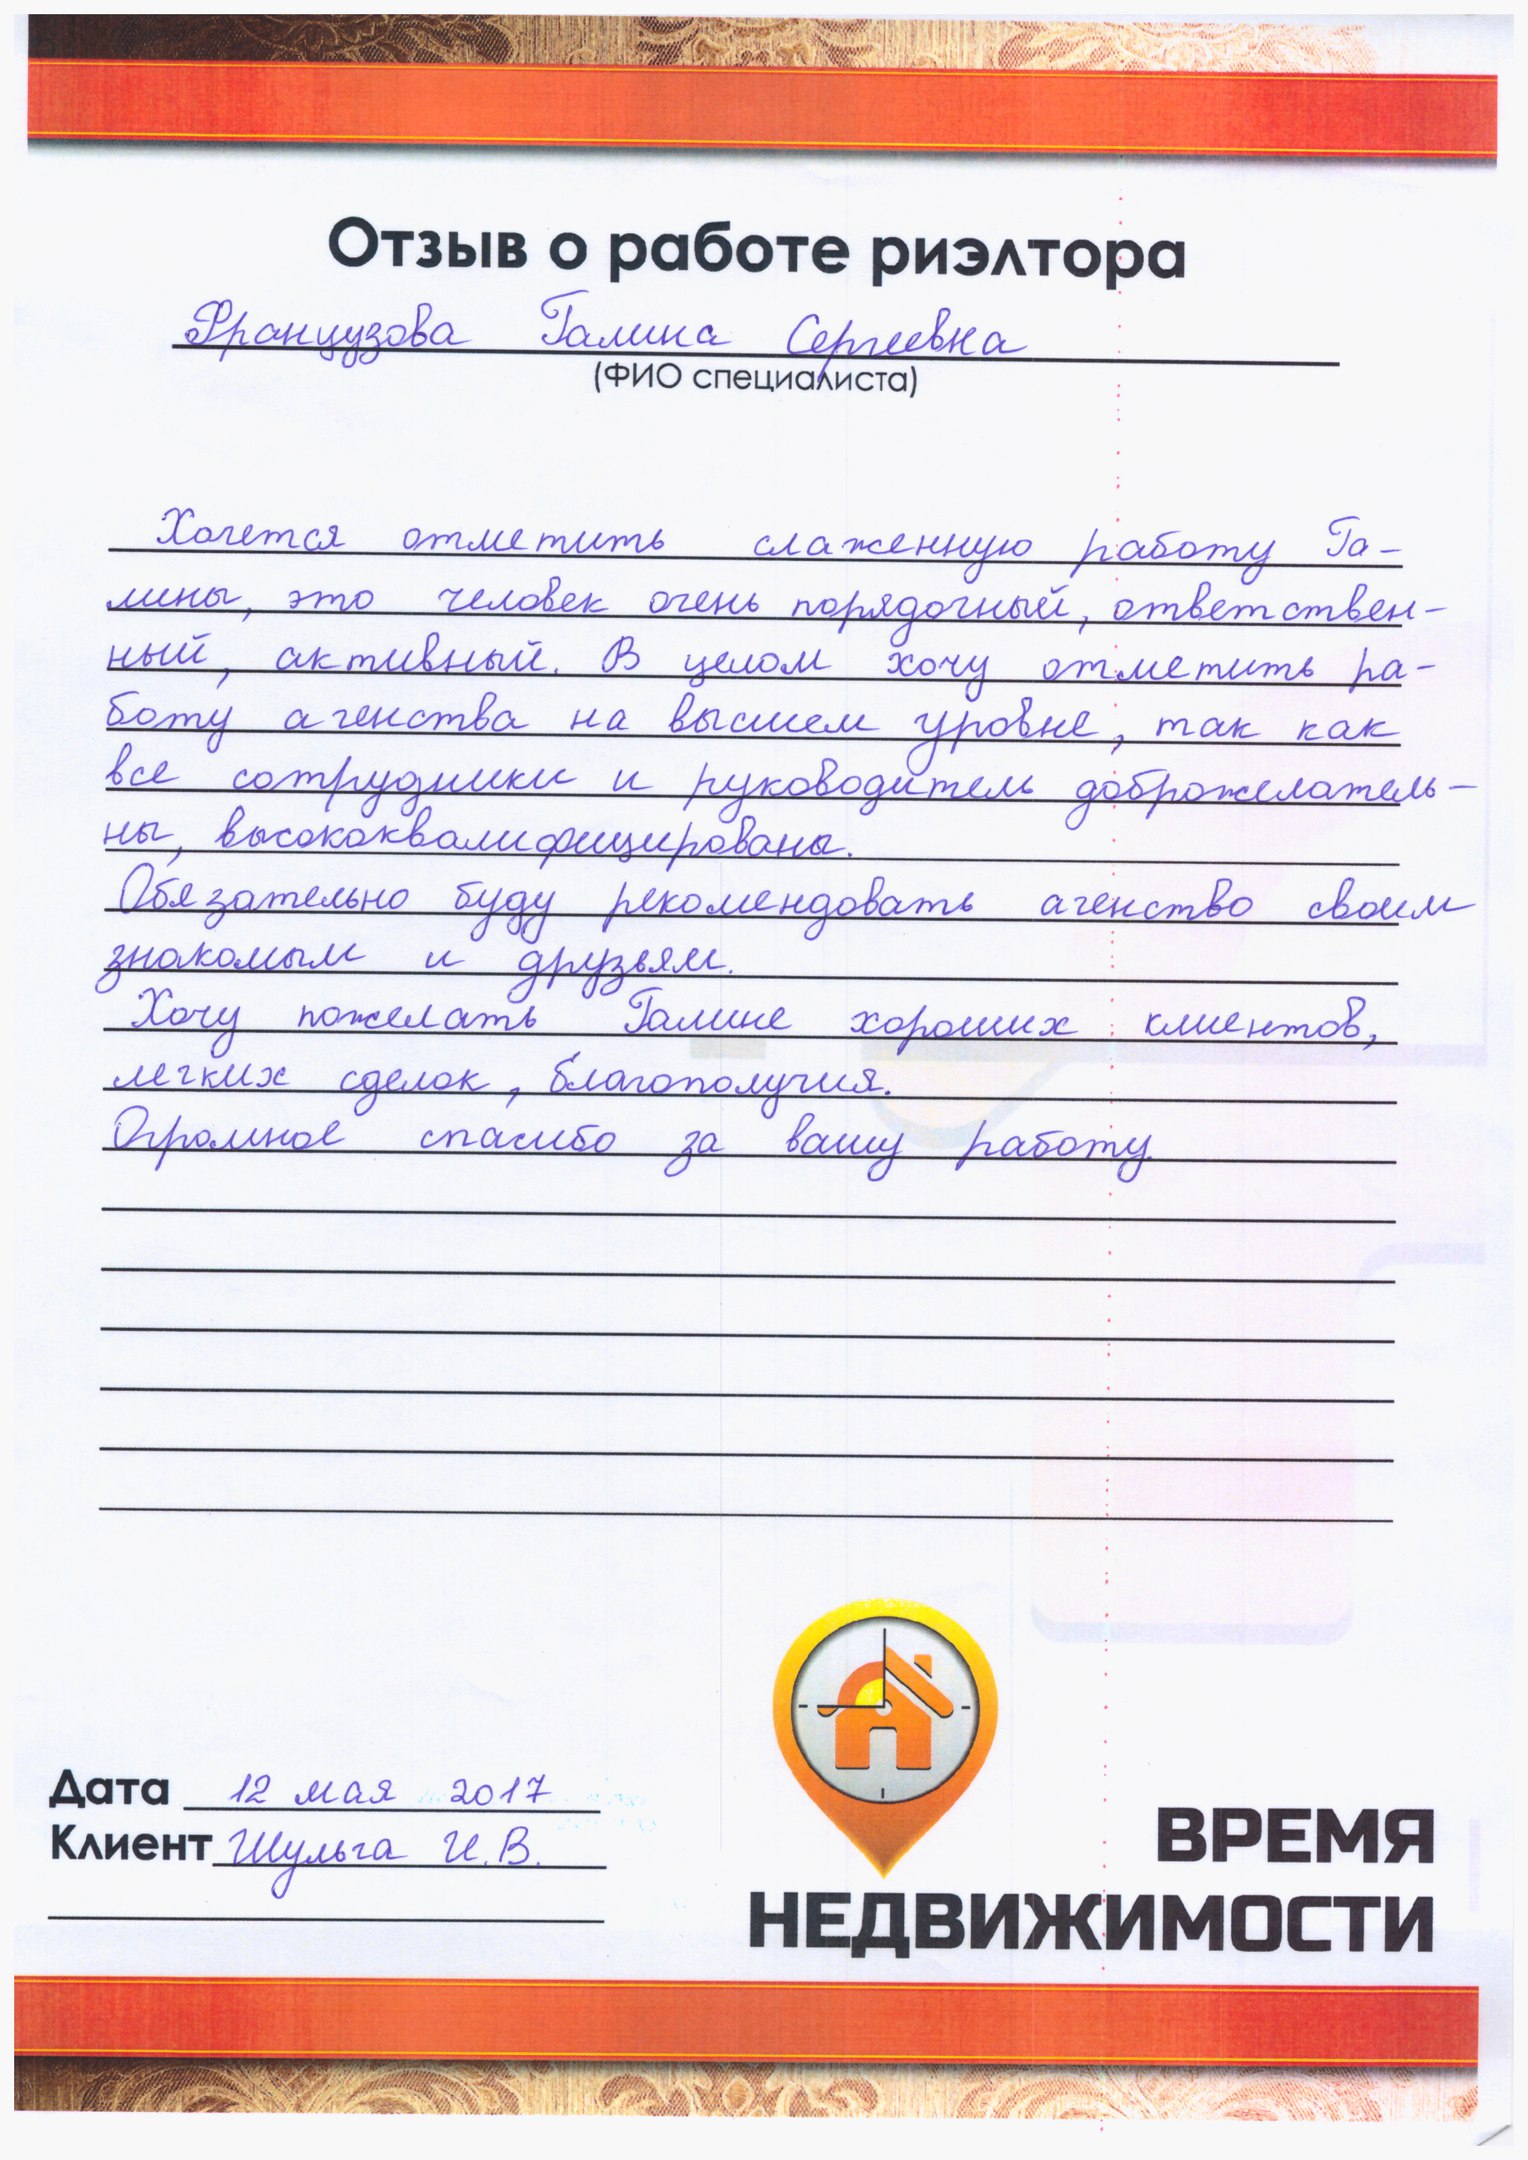 Отзыв о работе риэлтора
Французова Галина Сергеевна
(ФИО специалиста)
Хочется отметить слаженную работу Га-
лины, это человек очень порядочный, ответствен-
ный, активный. В целом хочу отметить ра-
боту агенства на высшем уровне, так как
все сотрудники и руководитель доброжелатель-
ны, высококвалифицированы.
Обязательно буду рекомендовать агенство своим
знакомым и друзьям.
Хочу пожелать Галине хороших клиентов,
легких сделок, благополучия.
Огромное спасибо за вашу работу.
Дата 12 мая 2017
Клиент Шульга И.В.
ВРЕМЯ
НЕДВИЖИМОСТИ